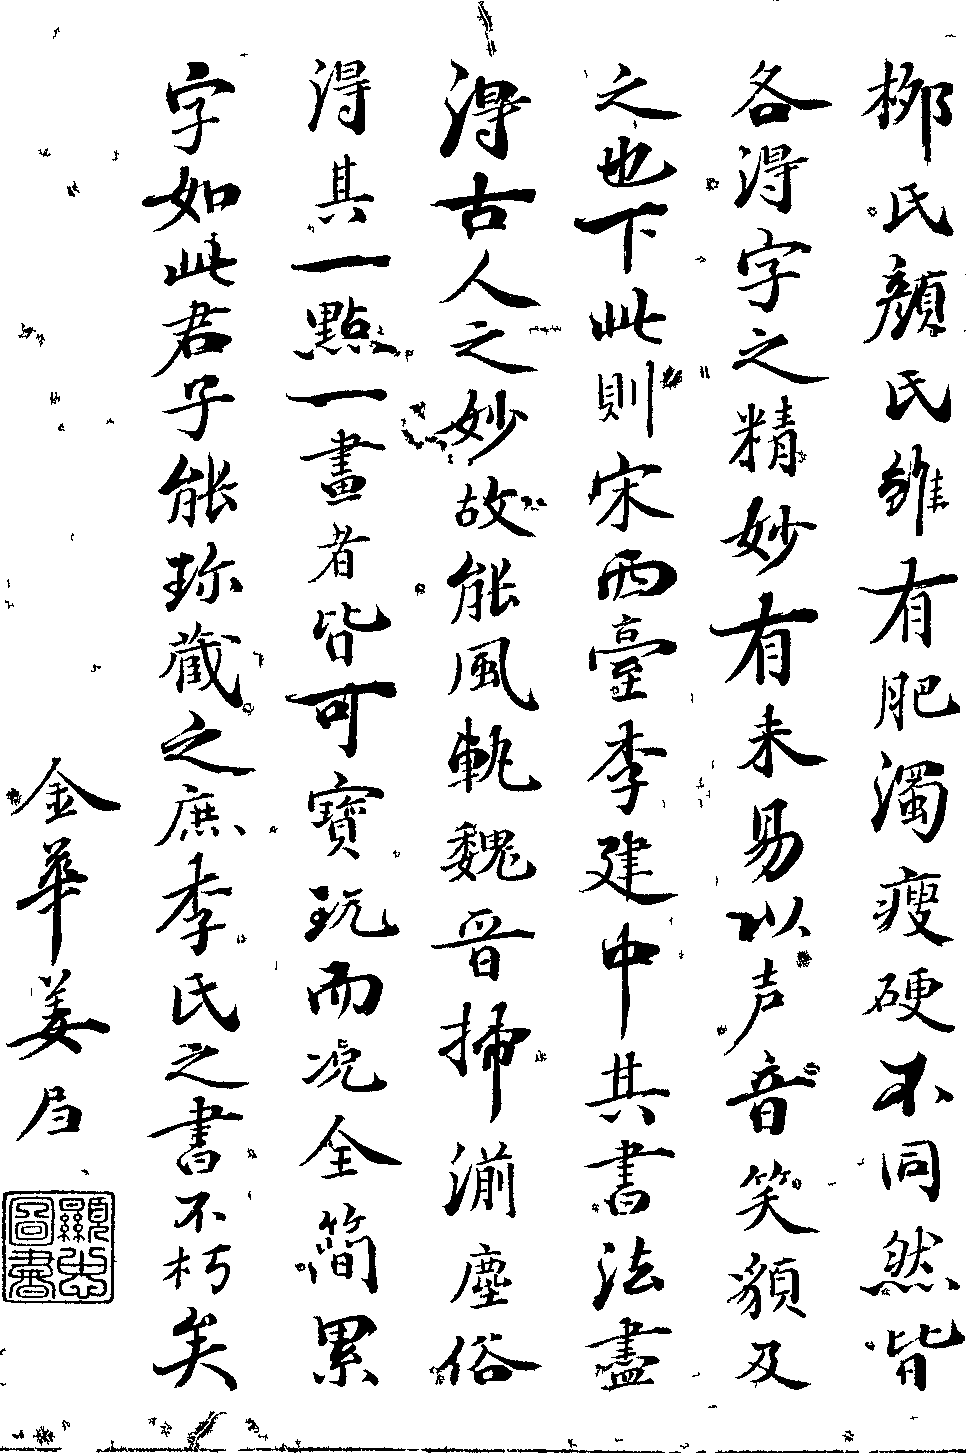 柳氏顔氏雖有肥濁瘦硬不同然皆
各得字之精妙有未易以声音笑貌及
之也下此則宋西臺李建中其書法盡
得古人之妙故能風軌魏晉掃湔塵俗
得其一點一畫者皆可寶玩而况全簡累
字如此君子能珍藏之庶李氏之書不朽矣
金華姜
圖書